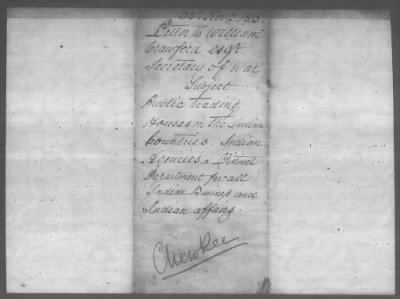 Letter to William
Crawford esqr
Secretary of war
Subject
Public trading
Houses in the Indian
Countries. Indian
Agencies. a Distinct
Department for all
Indian Business and
Indian affairs
Cherokee